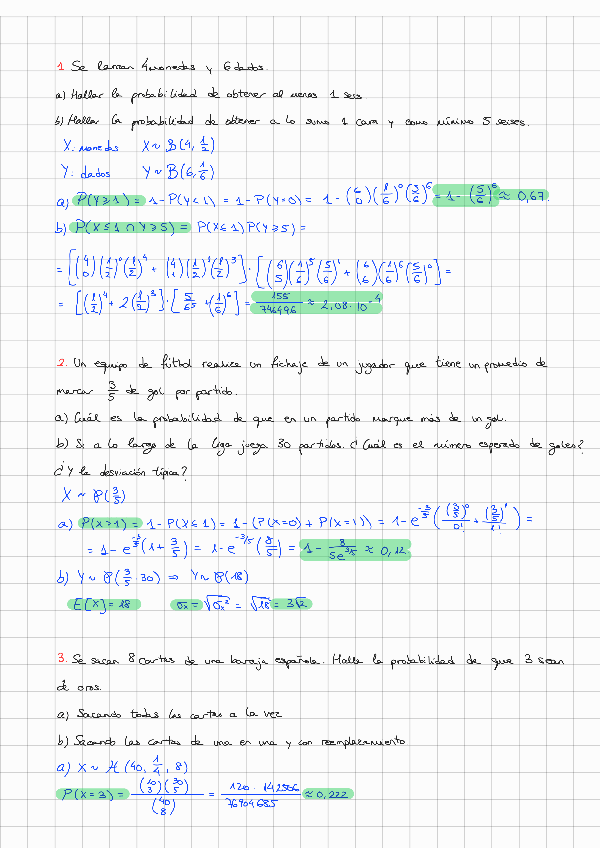 1. Se lanzan 4 monedas y 6 dados.
a) Hallar la probabilidad de obtener al menos 1 seis
b) Hallar la probabilidad de obtener a lo sumo 1 cara y como mínimo 5 seises.
X: monedas X ~ B(4, 1/2)
Y: dados Y ~ B(6, 1/6)
a) P(Y ≥ 1) = 1 - P(Y < 1) = 1 - P(Y=0) = 1 - (6 0)(1/6)^0 (5/6)^6 = 1 - (5/6)^6 ≈ 0,67.
b) P(X ≤ 1 ∩ Y ≥ 5) = P(X ≤ 1) P(Y ≥ 5) =
= [(4 0)(1/2)^0 (1/2)^4 + (4 1)(1/2)^1 (1/2)^3] · [(6 5)(1/6)^5 (5/6)^1 + (6 6)(1/6)^6 (5/6)^0] =
= [(1/2)^4 + 2(1/2)^3] · [5/6^5 + (1/6)^6] = 155/746496 ≈ 2,08 · 10^-4
2. Un equipo de fútbol realiza un fichaje de un jugador que tiene un promedio de
marcar 3/5 de gol por partido.
a) Cuál es la probabilidad de que en un partido marque más de un gol.
b) Si a lo largo de la liga juega 30 partidos. ¿Cuál es el número esperado de goles?
¿Y la desviación típica?
X ~ P(3/5)
a) P(X > 1) = 1 - P(X ≤ 1) = 1 - (P(X=0) + P(X=1)) = 1 - e^-3/5 ((3/5)^0/0! + (3/5)^1/1!) =
= 1 - e^-3/5 (1 + 3/5) = 1 - e^-3/5 (8/5) = 1 - 8/5e^3/5 ≈ 0,12
b) Y ~ P(3/5 · 30) ⇒ Y ~ P(18)
E[X] = 18 σx = √σx² = √18 = 3√2
3. Se sacan 8 cartas de una baraja española. Halla la probabilidad de que 3 sean
de oros.
a) Sacando todas las cartas a la vez
b) Sacando las cartas de una en una y con reemplazamiento
a) X ~ H(40, 1/4, 8)
P(X = 3) = (10 3)(30 5)/(40 8) = 120 · 142506/76904685 ≈ 0,222